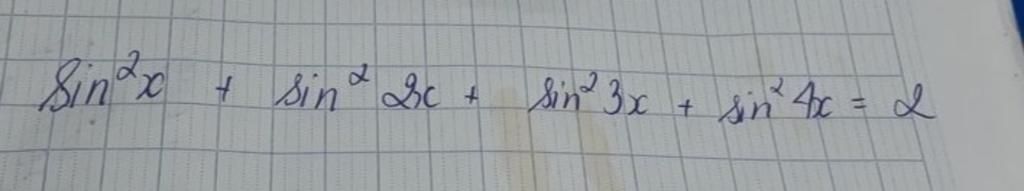 sin²x + sin² 2x + sin² 3x + sin² 4x = 2